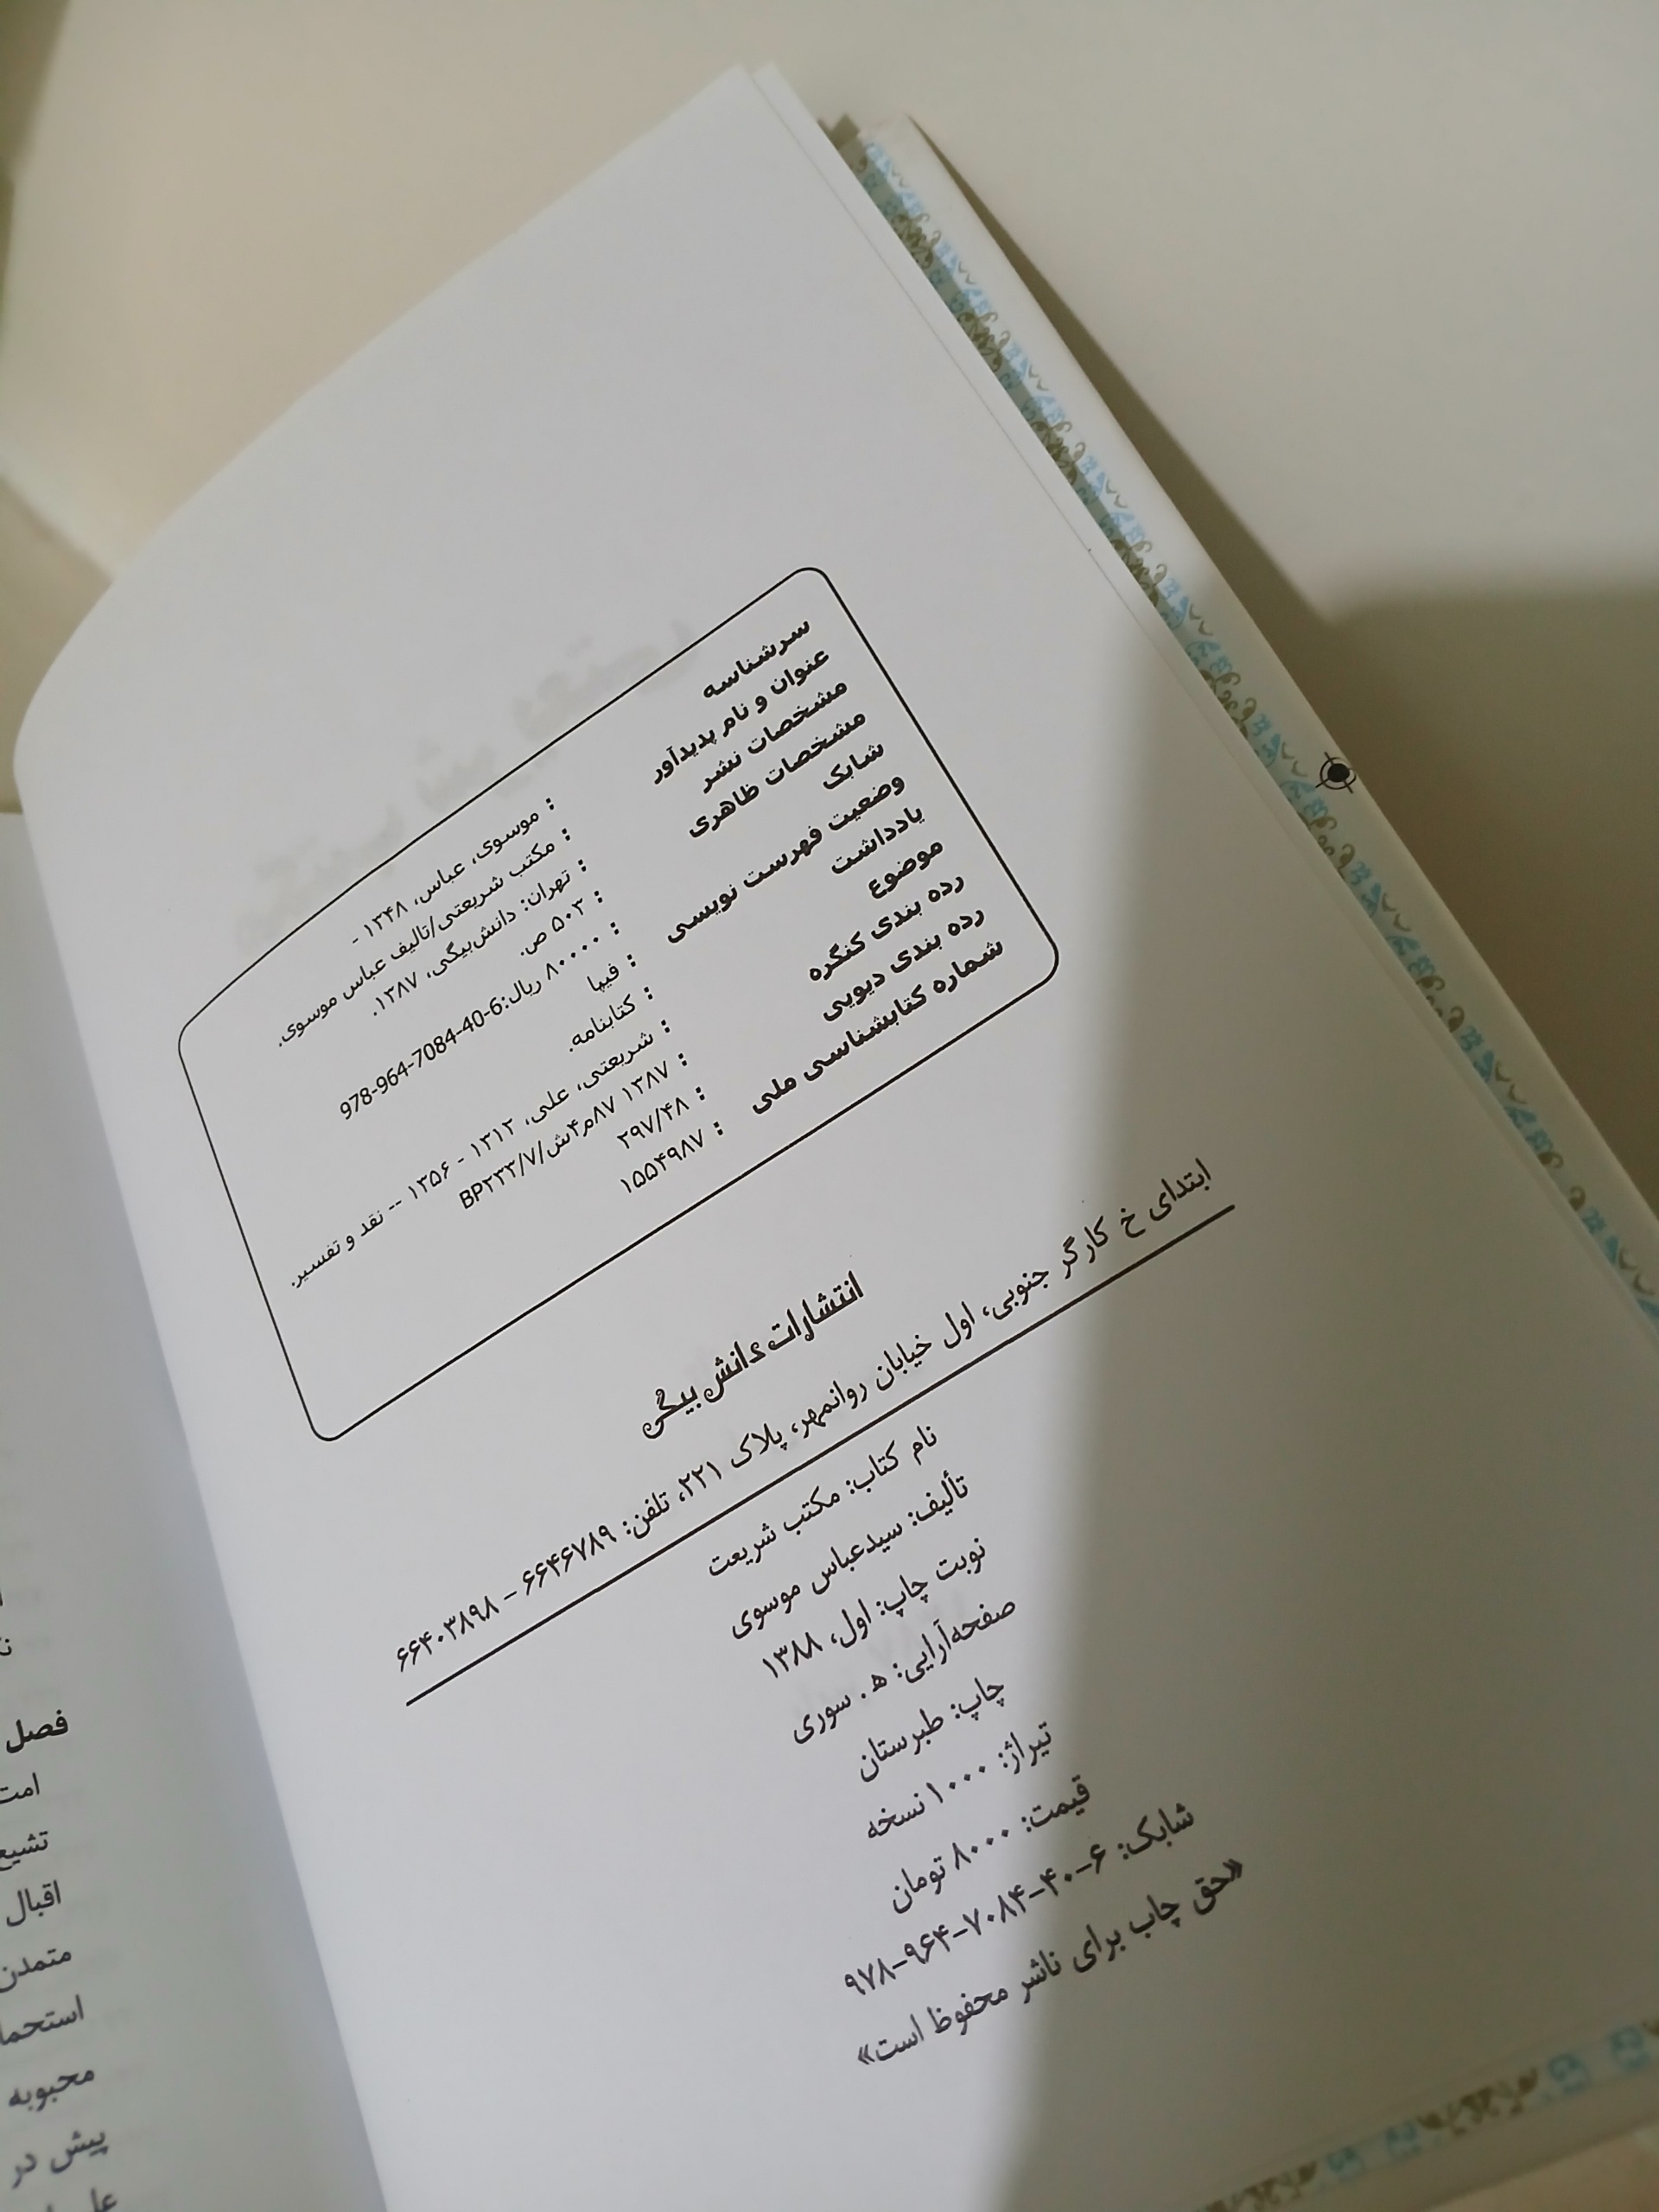 سرشناسه : موسوی، عباس، ۱۳۴۸ -
عنوان و نام پدیدآور : مکتب شریعتی/تالیف عباس موسوی.
مشخصات نشر : تهران: دانش‌بیگی، ۱۳۸۷.
مشخصات ظاهری : ۵۰۳ ص.
شابک : ۸۰۰۰۰ ریال:6-40-7084-964-978
وضعیت فهرست نویسی : فیپا
یادداشت : کتابنامه.
موضوع : شریعتی، علی، ۱۳۱۲ - ۱۳۵۶ -- نقد و تفسیر.
رده بندی کنگره : ۱۳۸۷ ۸۷م۴ش/BP۲۳۳/۷
رده بندی دیویی : ۲۹۷/۴۸
شماره کتابشناسی ملی : ۱۵۵۴۹۸۷
انتشارات دانش بیگی
ابتدای خ کارگر جنوبی، اول خیابان روانمهر، پلاک ۲۲۱، تلفن: ۶۶۴۶۷۸۹ – ۶۶۴۰۳۸۹۸
نام کتاب: مکتب شریعت
تألیف: سیدعباس موسوی
نوبت چاپ: اول، ۱۳۸۸
صفحه‌آرایی: ه. سوری
چاپ: طبرستان
تیراژ: ۱۰۰۰ نسخه
قیمت: ۸۰۰۰ تومان
شابک: ۶-۴۰-۷۰۸۴-۹۶۴-۹۷۸
«حق چاپ برای ناشر محفوظ است»
فصل
تشیع
اقبال
متمدن
محبوبه
پیش در